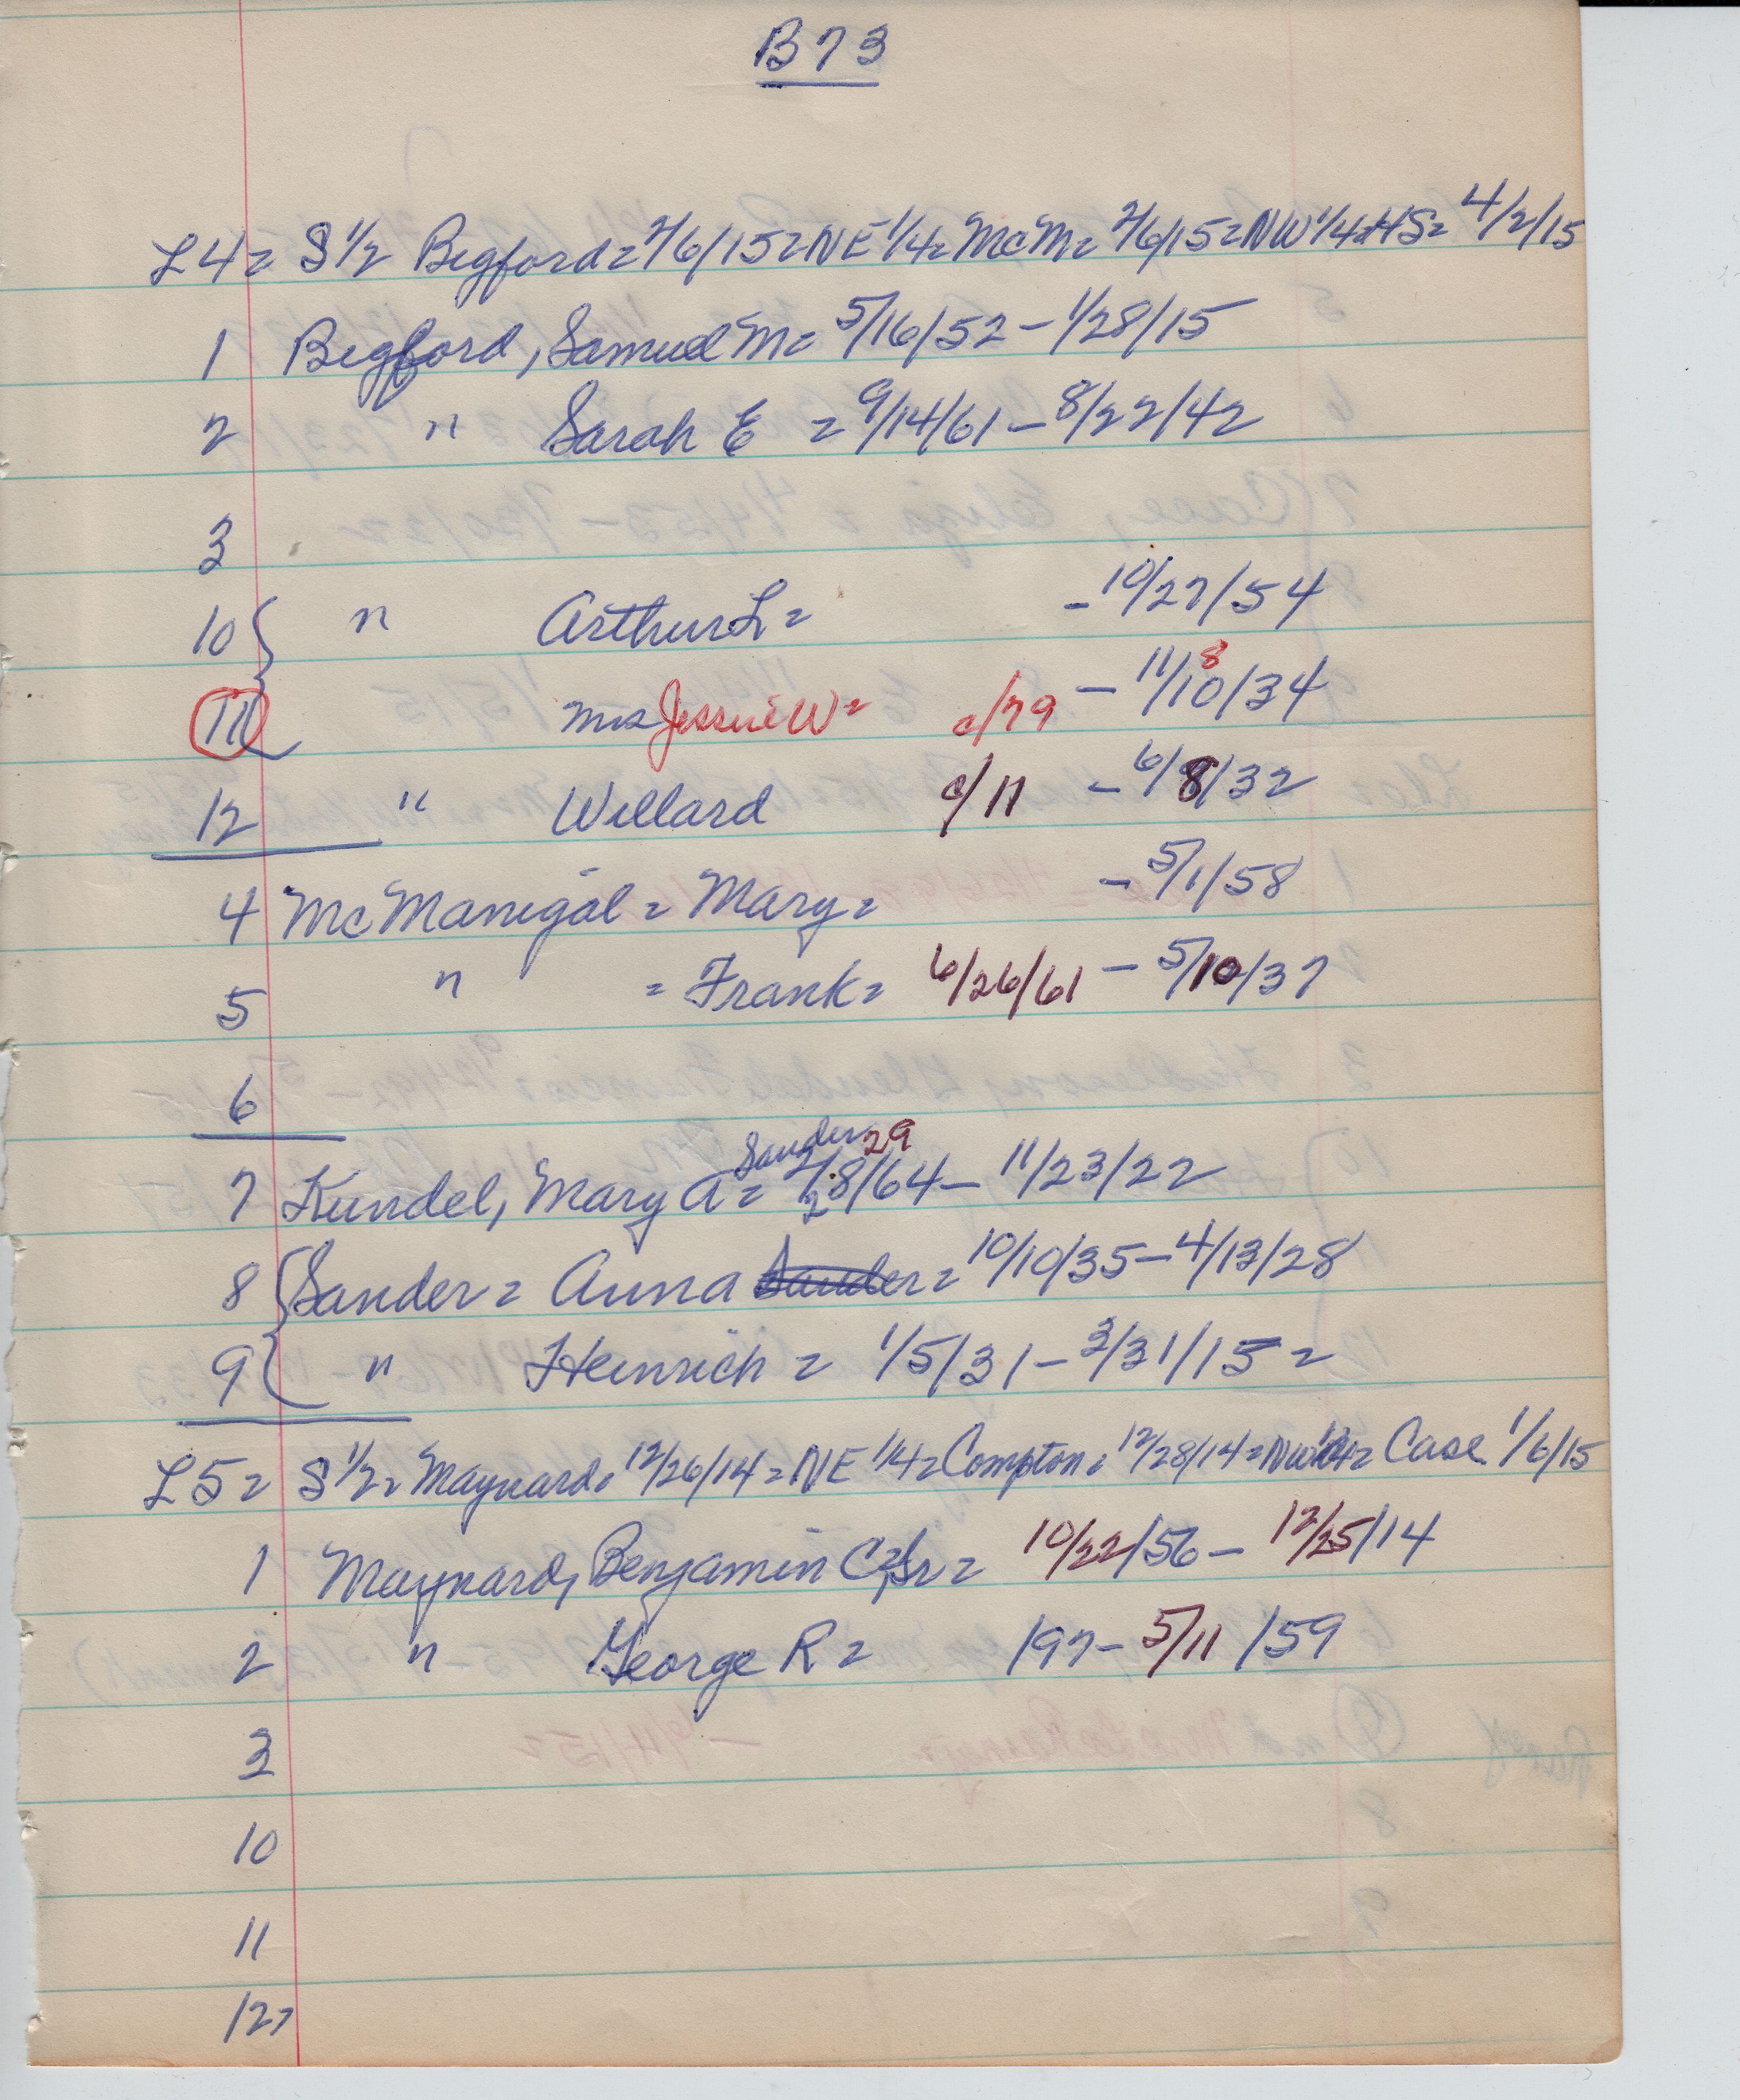 B73
L4= S 1/2 Begford= 2/6/15= NE 1/4= McM= 2/6/15= NW 1/4= HS= 4/2/15
1 Begford, Samuel M= 5/16/52 - 1/28/15
2 " Sarah E = 9/14/61 - 8/22/42
3
10 " Arthur L= - 10/27/54
11 Mrs Jessie W= c/79 - 11/10/34 8
12 " Willard c/11 - 6/8/32
4 McManigal = Mary= - 5/1/58
5 " = Frank= 6/26/61 - 5/10/37
6
Sander 29
7 Kundel, Mary A= 2/28/64 - 11/23/22
8 Sander = Anna Sander= 10/10/35 - 4/13/28
9 " Heinrich = 1/5/31 - 3/31/15 =
L5= S 1/2= Maynard= 12/26/14= NE 1/4= Compton= 12/28/14= NW 1/4= Case 1/6/15
1 Maynard, Benjamin C, Sr= 10/22/56 - 12/25/14
2 " George R= /97 - 5/11/59
3
10
11
12